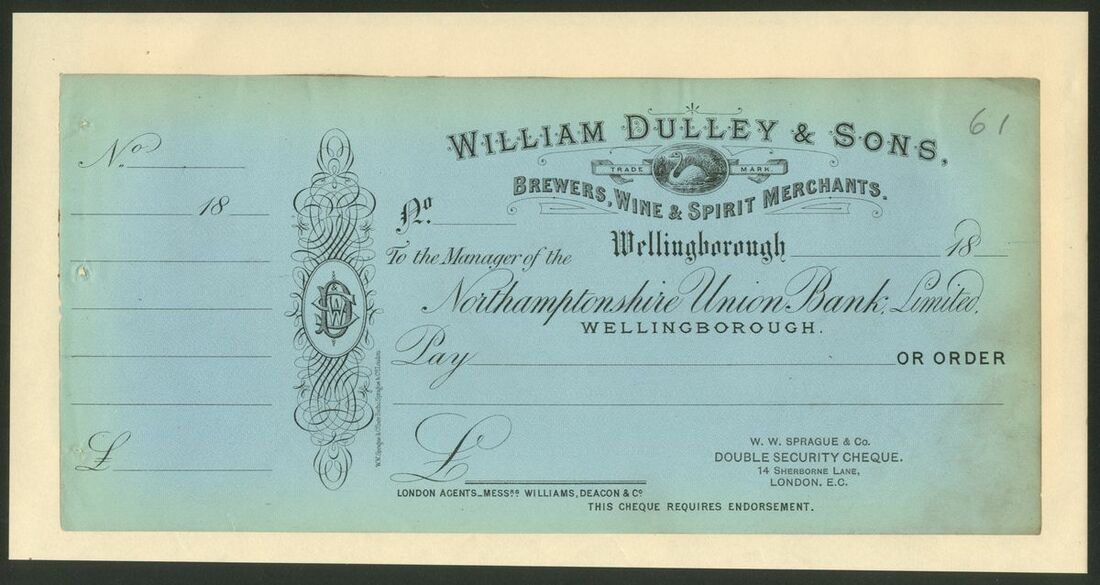 61
WILLIAM DULLEY & SONS,
TRADE MARK.
BREWERS, WINE & SPIRIT MERCHANTS.
No.
18
No.
Wellingborough 18
To the Manager of the
Northamptonshire Union Bank, Limited.
WELLINGBOROUGH.
Pay OR ORDER
£
£
W. W. SPRAGUE & Co.
DOUBLE SECURITY CHEQUE.
14 SHERBORNE LANE,
LONDON. E.C.
LONDON AGENTS_MESSRS WILLIAMS, DEACON & Co
THIS CHEQUE REQUIRES ENDORSEMENT.